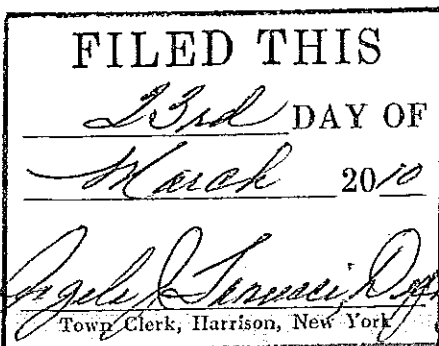 FILED THIS
23rd DAY OF
March 2010
Angela
Town Clerk, Harrison, New York